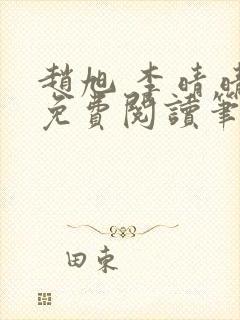 趙旭李晴晴
免費閱讀筆
田東